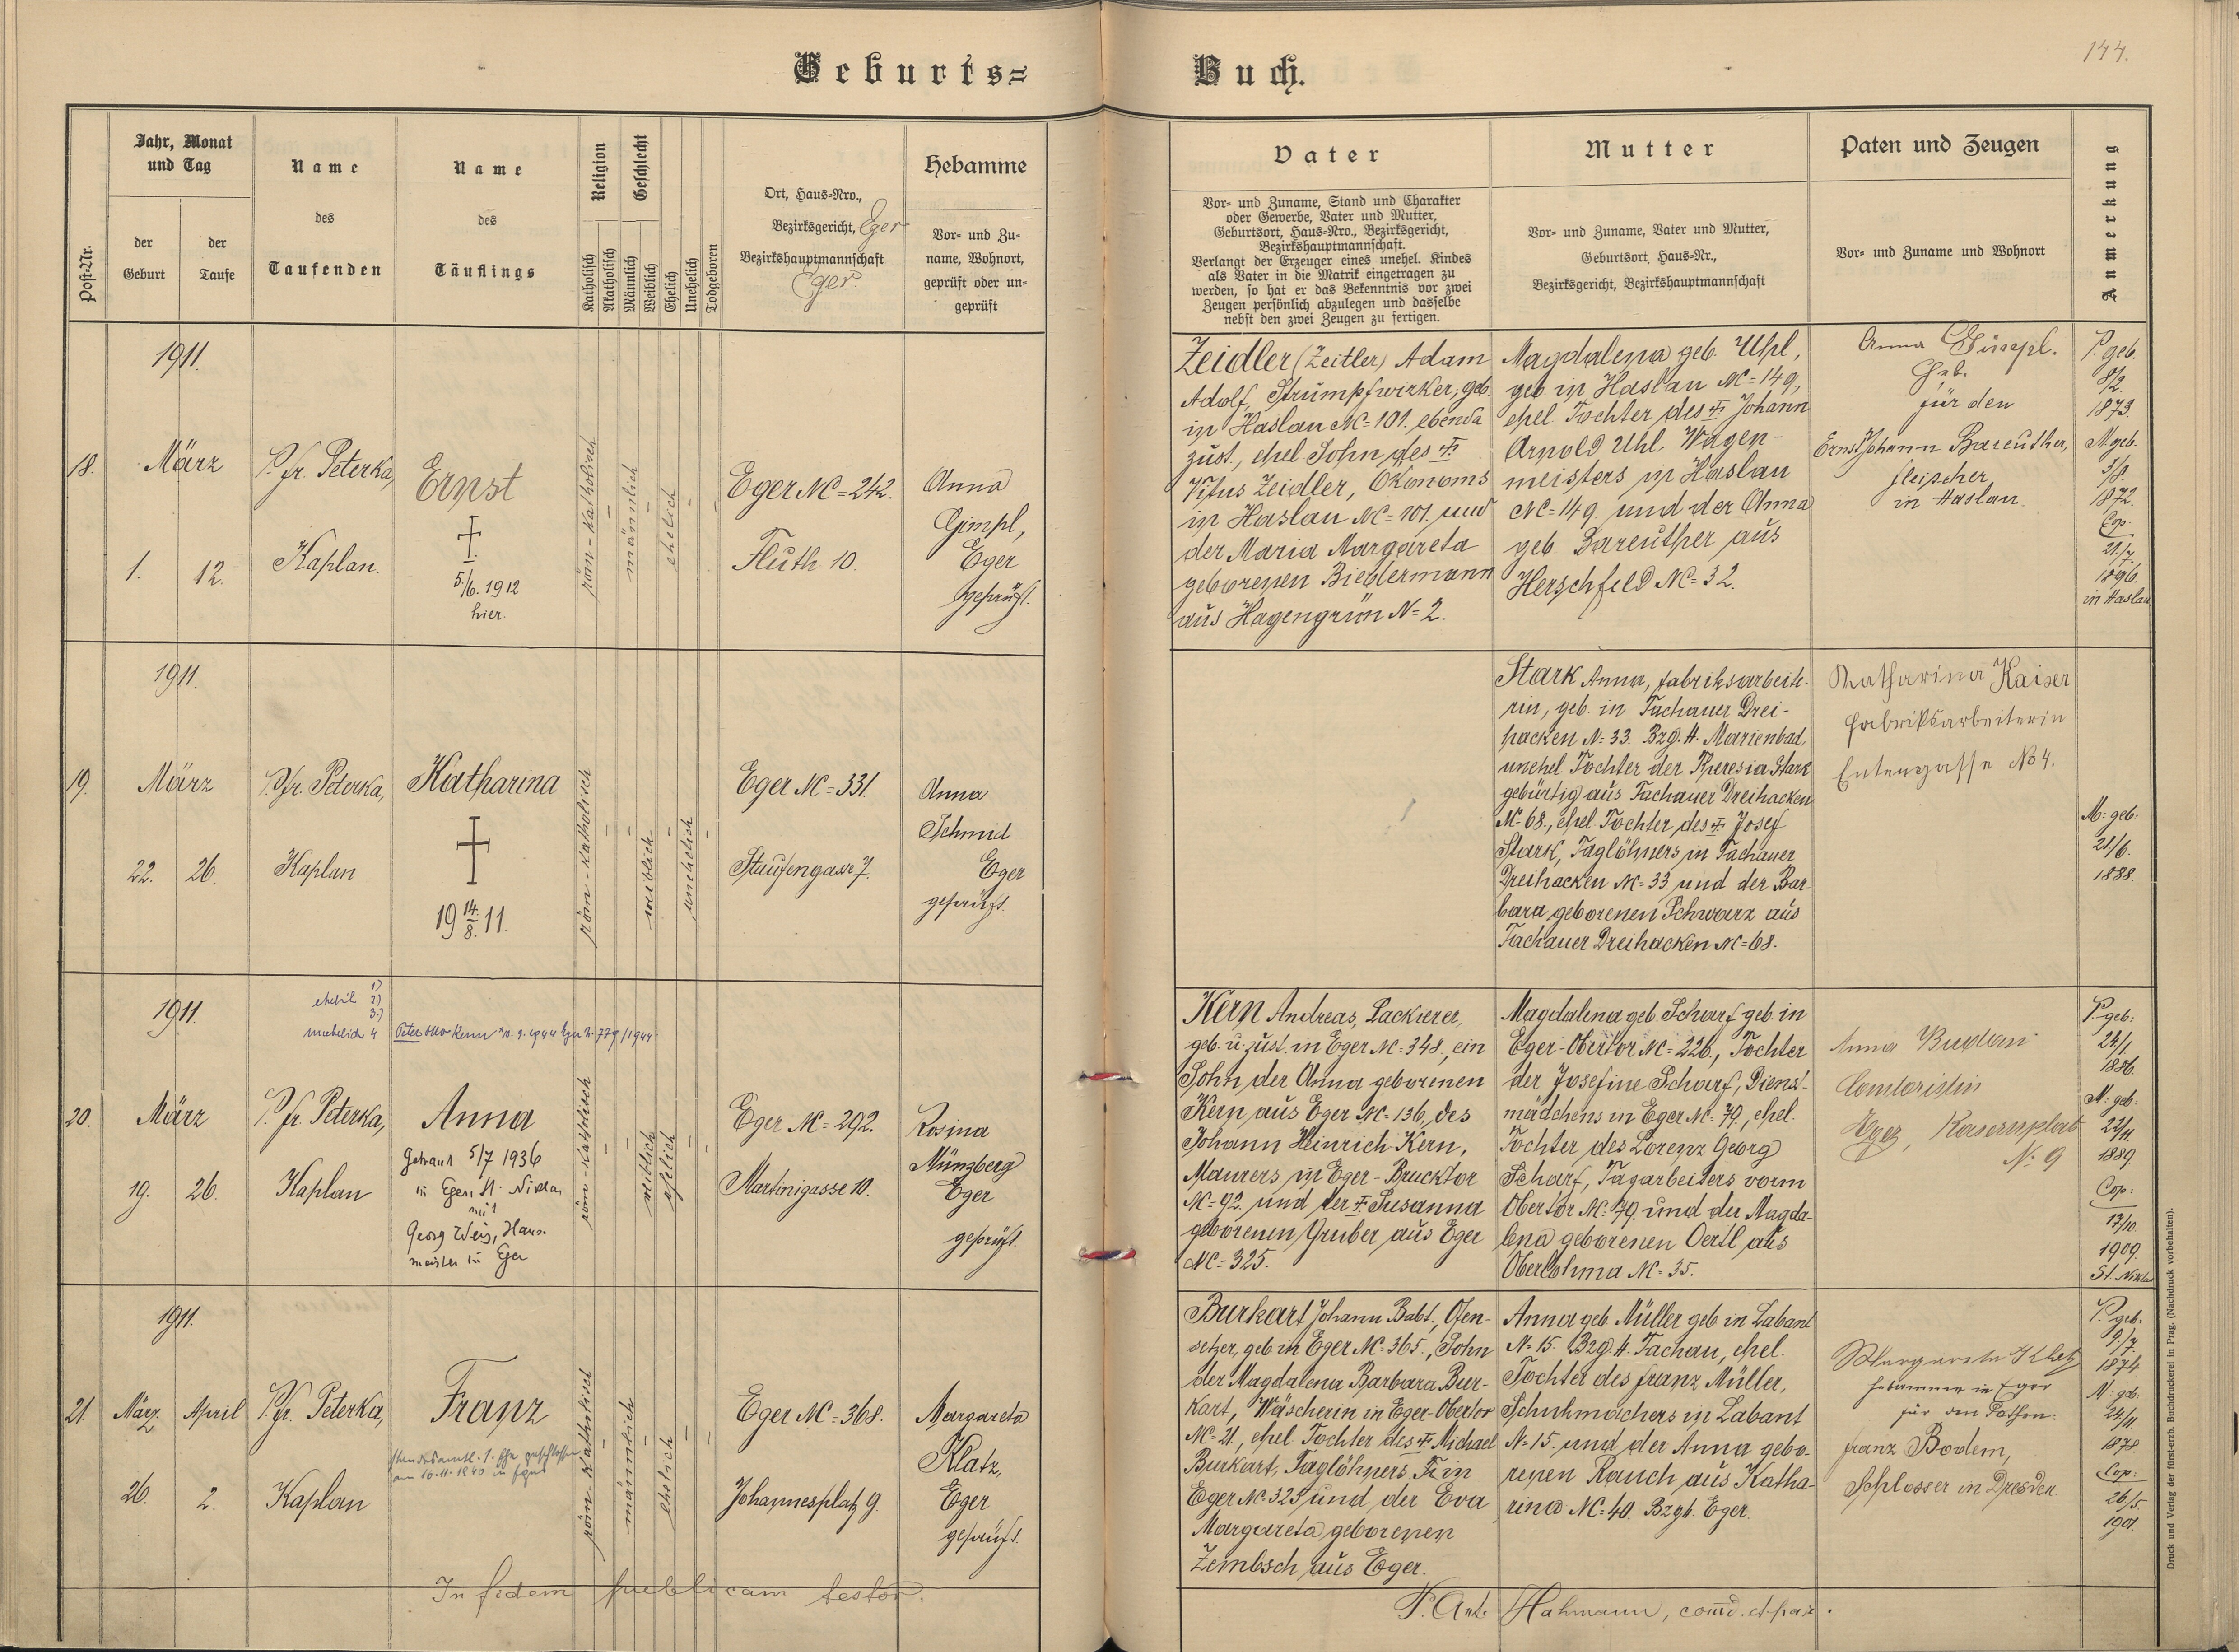 Geburts=
Buch.
144.
Post-Nr.
Jahr, Monat
und Tag
der
Geburt
der
Taufe
Name
des
Taufenden
Name
des
Täuflings
Religion
Katholisch
Akatholisch
Geschlecht
Männlich
Weiblich
Ehelich
Unehelich
Todgeboren
Ort, Haus=Nro.,
Bezirksgericht, Eger
Bezirkshauptmannschaft
Eger.
Hebamme
Vor= und Zu=
name, Wohnort,
geprüft oder un=
geprüft
Vater
Vor= und Zuname, Stand und Charakter
oder Gewerbe, Vater und Mutter,
Geburtsort, Haus=Nro., Bezirksgericht,
Bezirkshauptmannschaft.
Verlangt der Erzeuger eines unehel. Kindes
als Vater in die Matrik eingetragen zu
werden, so hat er das Bekenntnis vor zwei
Zeugen persönlich abzulegen und dasselbe
nebst den zwei Zeugen zu fertigen.
Mutter
Vor= und Zuname, Vater und Mutter,
Geburtsort, Haus=Nr.,
Bezirksgericht, Bezirkshauptmannschaft
Paten und Zeugen
Vor= und Zuname und Wohnort
Anmerkung
18.
1911.
März
1.
12.
P. fr. Peterka,
Kaplan.
Ernst
†
5/6. 1912
hier.
röm-katholisch
männlich
ehelich
Eger NC=242.
Fluth 10.
Anna
Gimpl,
Eger
geprüft.
Zeidler (Zeitler) Adam
Adolf, Strumpfwirker, geb.
in Haslau NC=101. ebenda
zust., ehel. Sohn des †
Vitus Zeidler, Ökonoms
in Haslau NC=101. und
der Maria Margareta
geborenen Biedermann
aus Hagengrün N=2.
Magdalena geb. Uhl,
geb. in Haslau NC=149,
ehel. Tochter des † Johann
Arnold Uhl, Wagen-
meisters in Haslau
NC=149. und der Anna
geb. Bareuther aus
Herschfeld NC=32.
Anna Gimpl.
Heb.
für den
Ernst Johann Bareuther,
fleischer
in Haslau.
P. geb.
8/2.
1873.
M geb.
3/8.
1872.
Cop.
21./7.
1896.
in Haslau
19.
1911.
März
22.
26.
P. fr. Peterka,
Kaplan
Katharina
†
19 14./8. 11.
röm-katholisch
weiblich
unehelich
Eger NC=331.
Staufengasse 7.
Anna
Schmid
Eger
geprüft.
Stark Anna, fabriksarbeite-
rin, geb. in Tachauer Drei-
hacken N=33. Bzg. H. Marienbad,
unehel. Tochter der Theresia Stark
gebürtig aus Tachauer Dreihacken
NC=68., ehel. Tochter des † Josef
Stark, Taglöhners in Tachauer
Dreihacken NC=33. und der Bar-
bara geborenen Schwarz aus
Tachauer Dreihacken NC=68.
Katharina Kaiser
fabriksarbeiterin
Entengasse No 4.
M: geb:
21/6.
1888.
20.
1911.
März
19.
26.
1)
2)
3)
P. fr. Peterka,
Kaplan
Anna
Getraut 5/7 1936
in Eger, St. Niklas
mit
Georg Weis, Haus-
meister in Eger
röm-katholisch
weiblich
ehelich
Eger NC=292.
Martinigasse 10.
Rosina
Münzberg
Eger
geprüft.
Kern Andreas, Lackierer,
geb. u. zust. in Eger NC=348., ein
Sohn der Anna geborenen
Kern aus Eger NC=136, des
Johann Heinrich Kern,
Maurers in Eger-Brucktor
NC=92. und der † Susanna
geborenen Gruber aus Eger
NC=325.
Magdalena geb. Scharf geb. in
Eger-Obertor NC=226., Tochter
der Josefine Scharf, Dienst-
mädchens in Eger NC=79., ehel.
Tochter des Lorenz Georg
Scharf, Tagarbeiters vorm
Obertor NC=79. und der Magda-
lena geborenen Oertl aus
Oberlohma NC=35.
Anna
Contoristin
Eger
N: 9
P. geb:
24/1.
1886.
M: geb:
22/11.
1889.
Cop:
17/10.
1909.
St. Niklas
21.
1911.
März
April
26.
2.
P. fr. Peterka,
Kaplan
Franz
röm-katholisch
männlich
ehelich
Eger NC=368.
Johannesplatz 9.
Margareta
Klatz,
Eger
geprüft.
Burkart Johann Babt., Ofen-
setzer, geb. in Eger NC=365., Sohn
der Magdalena Barbara Bur-
kart, Wäscherin in Eger-Obertor
NC=21, ehel. Tochter des † Michael
Burkart, Taglöhners † in
Eger NC=325 und der Eva
Margareta geborenen
Zembsch aus Eger.
Anna geb. Müller geb. in Labant
N=15. Bzg. H. Tachau, ehel.
Tochter des franz Müller,
Schuhmachers in Labant
N=15. und der Anna gebo-
renen Rauch aus Katha-
rina NC=40. Bzgb. Eger.
Margareta Klatz
Hebamme in Eger
für den Pathen:
franz Bodem,
Schlosser in Dresden.
P. geb.
9./7.
1874.
M: geb.
24/11
1878.
Cop:
26/5.
1901.
In fidem publicam testor.
P. Ant. Hahmann, comd. et par.
Druck und Verlag der fürst-erzb. Buchdruckerei in Prag. (Nachdruck vorbehalten).